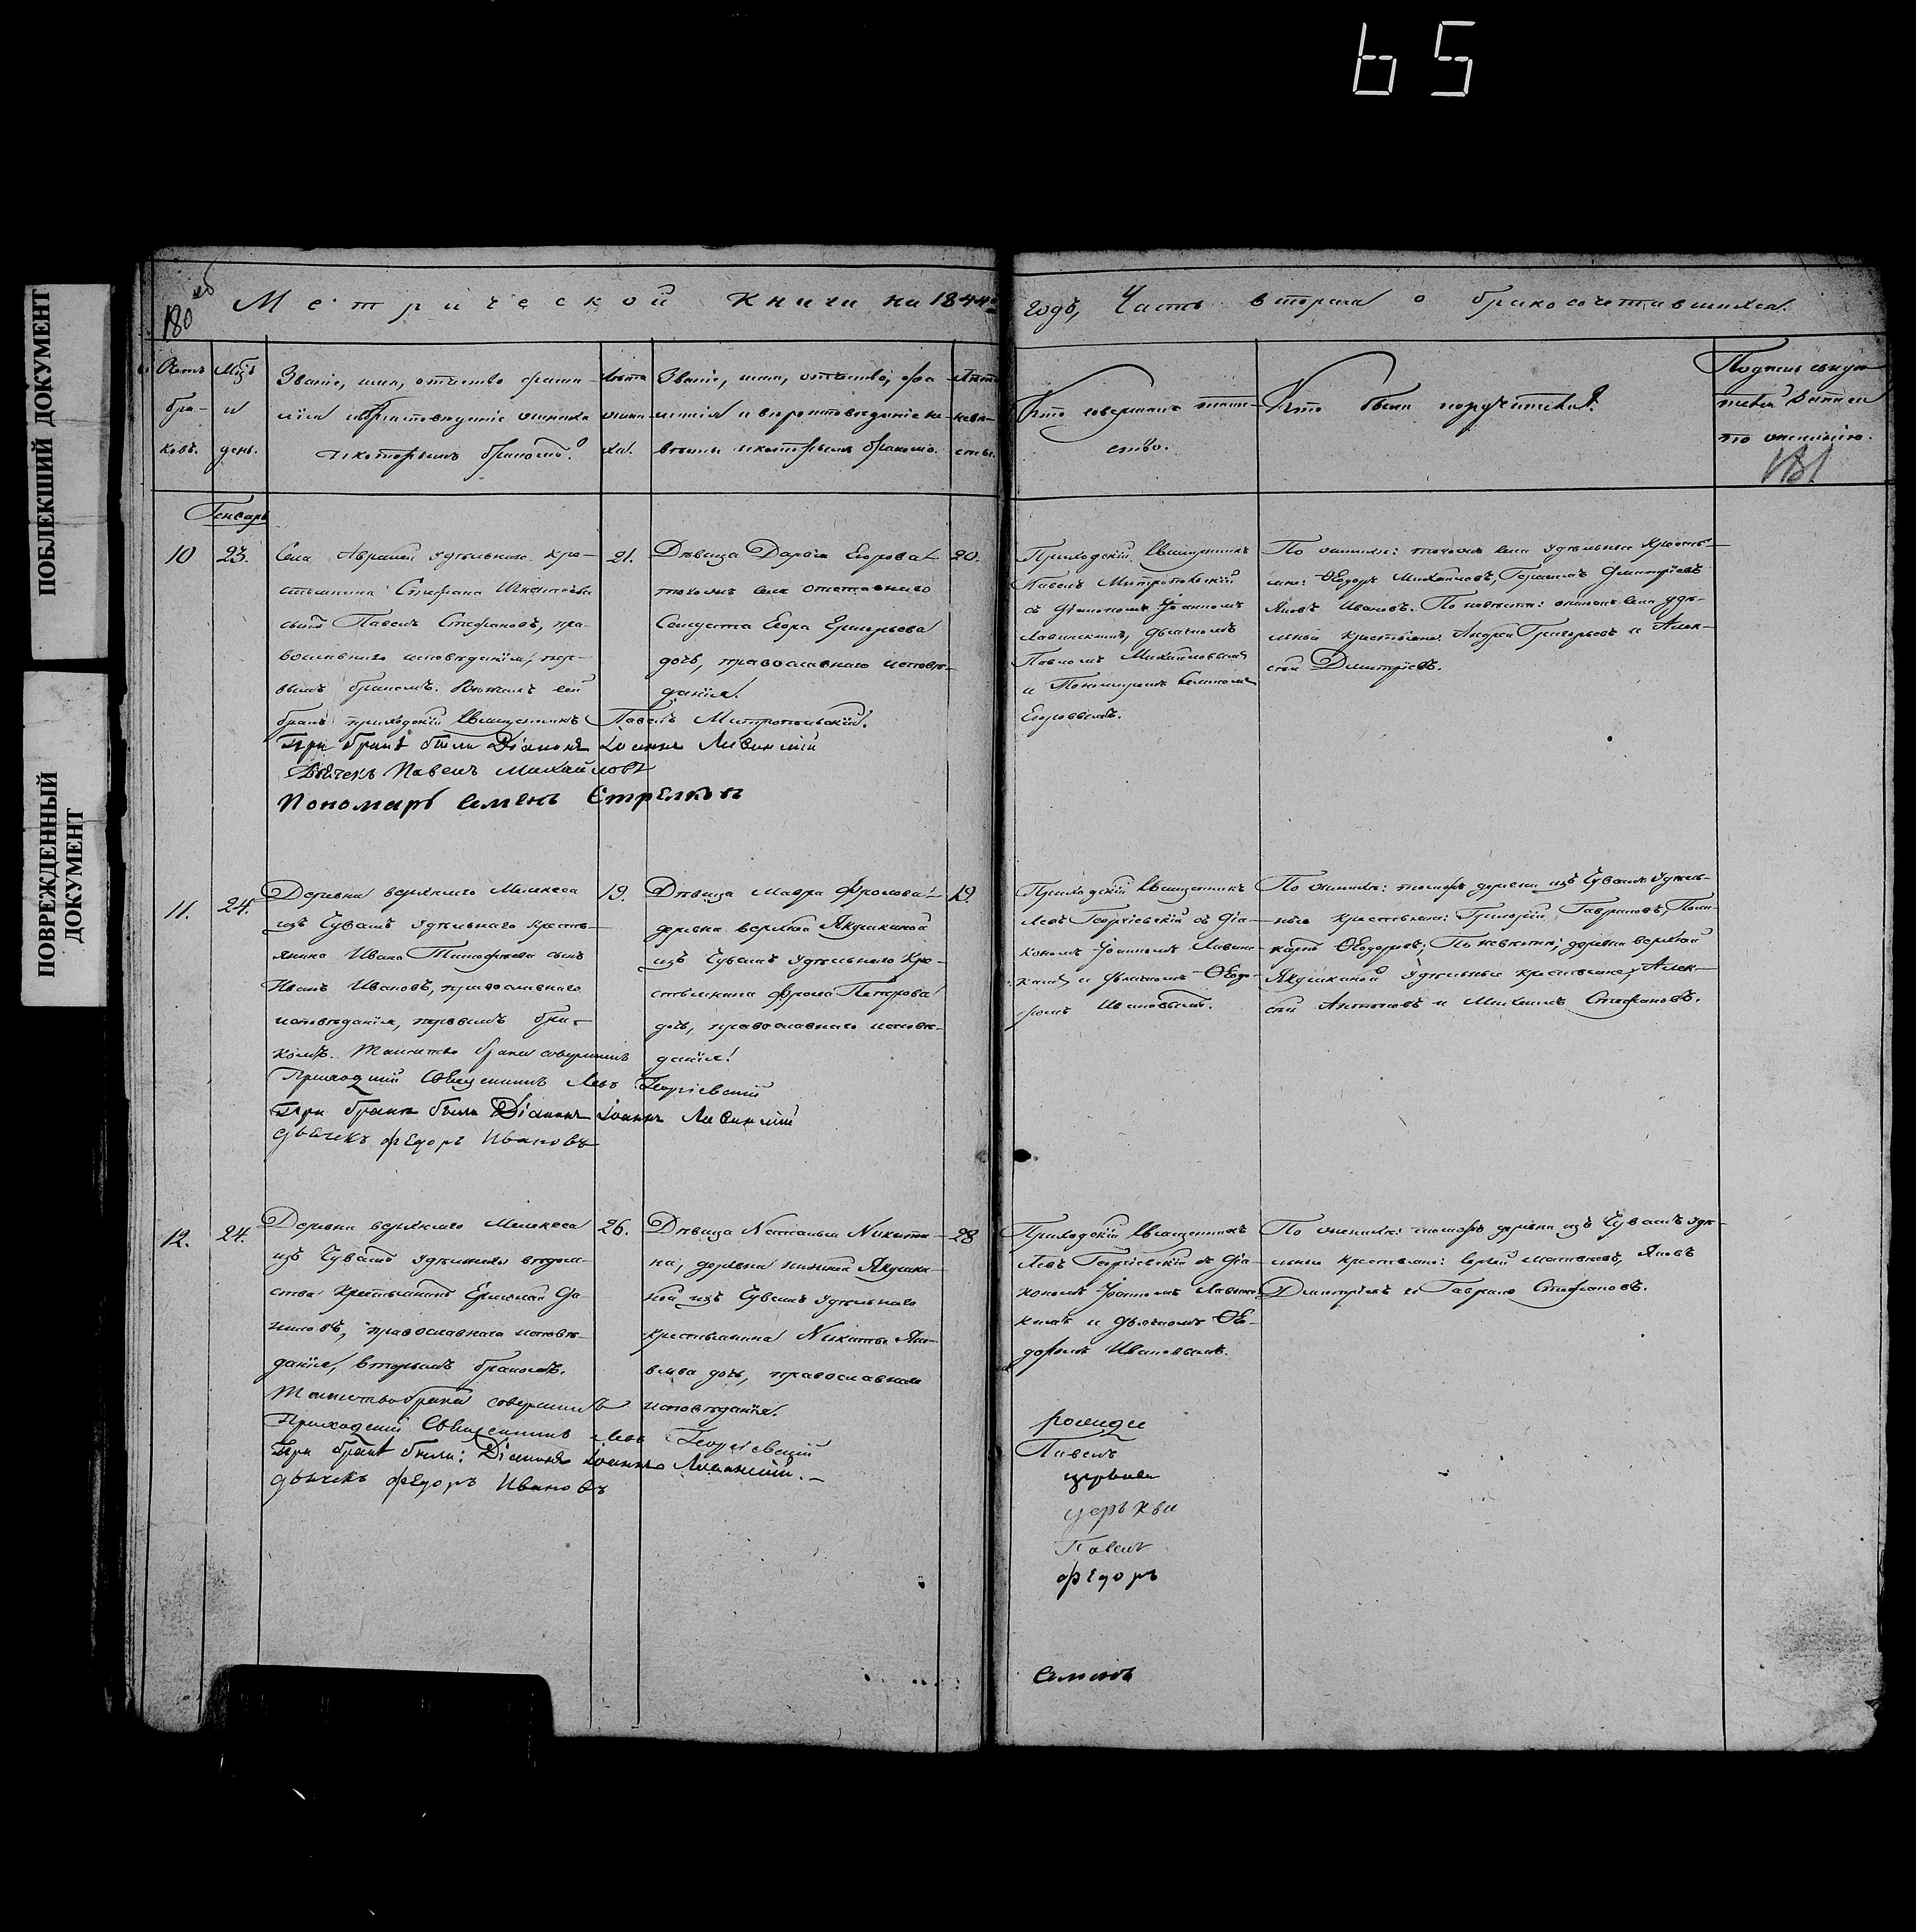 65
ПОБЛЕКШИЙ ДОКУМЕНТ
ПОВРЕЖДЕННЫЙ
ДОКУМЕНТ
180 об
Метрической Книги на 1844й
годъ, Часть вторая о бракосочетавшихся.
181
Счетъ
бра-
ковъ.
Мцъ
и
день.
Званіе, имя, отчество, фами-
лія и вѣроисповѣданіе жениха
и которымъ бракомъ?
Лѣта
жени-
ха.
Званіе, имя, отчество, фа-
милія и вѣроисповѣданіе не-
вѣсты и которымъ бракомъ.
Лѣта
невѣ-
сты.
Кто совершалъ таин-
ство.
Кто были поручители?
по желанію.
Генварь
10
23.
Села Авралей удѣльнаго кре-
стьянина Стефана
сынъ Павелъ Стефановъ, пра-
вославнаго исповѣданія, пер-
вымъ бракомъ. Вѣнчалъ сей
бракъ приходскій Священникъ Павелъ Митропольскій.
При бракѣ были Діаконъ Іоаннъ Лавинскій
Дьячекъ Павелъ Михайловъ
Пономарь Семенъ Стрелковъ
21.
Дѣвица Дарья Егорова
тогожъ села отставнаго
Солдата Егора Григорьева
дочь, православнаго исповѣ-
данія.
20.
Приходскій Священникъ
Павелъ Митропольскій
съ Діакономъ Іоанномъ
Лавинскимъ, Дьячкомъ
Павломъ Михайловымъ
и Пономаремъ Семеномъ
Егоровымъ.
По женихѣ: тогожъ села удѣльные Крестья-
не: Ѳеодоръ Михайловъ, Герасимъ Димитріевъ
Яковъ Ивановъ. По невѣстѣ: онагожъ села удѣ-
льные крестьяне: Андрей Григорьевъ и Алек-
сѣй Димитріевъ.
11.
24.
Деревни верхняго Мелекеса
изъ Чувашъ удѣльнаго кресть-
янина Ивана Тимофеева сынъ
Иванъ Ивановъ, православнаго
исповѣданія, первымъ бра-
комъ. Таинство брака совершилъ
Приходскій Священникъ Левъ Георгіевскій
При бракѣ были Діаконъ Іоаннъ Лавинскій
дьячекъ Федоръ Ивановъ
19.
Дѣвица Мавра Фролова
деревни верхней Якушкиной
изъ Чувашъ удѣльнаго Кре-
стьянина Фрола Петрова
дочь, православнаго исповѣ-
данія.
19.
Приходскій Священникъ
Левъ Георгіевскій съ Діа-
кономъ Іоанномъ Лавинс-
кимъ и Дьячкомъ Ѳеодо-
ромъ Ивановымъ.
По женихѣ: тойже деревни изъ Чувашъ Удѣль-
ные крестьяне: Григорій Гавриловъ, Поли-
карпъ Ѳеодоровъ; По невѣстѣ: деревни верхней
Якушкиной Удѣльные крестьяне, Алек-
сѣй Антоновъ и Михаилъ Стефановъ.
12.
24.
Деревни верхняго Мелекеса
изъ Чувашъ удѣльнаго вѣдом-
ства Крестьянинъ Ермолай Да-
ниловъ, православнаго исповѣ-
данія, вторымъ бракомъ.
Таинство брака совершилъ
Приходскій Священникъ Левъ Георгіевскій
При бракѣ были: Діаконъ Іоаннъ Лавинскій.
дьячекъ Федоръ Ивановъ
26.
Дѣвица Наталья Никити-
на, деревни нижней Якушки-
ной изъ Чувашъ удѣльнаго
крестьянина Никиты Яко-
влева дочь, православнаго
исповѣданія.
28
Приходскій Священникъ
Левъ Георгіевскій съ Діа-
кономъ Іоанномъ Лавинс-
кимъ и Дьячкомъ Ѳео-
доромъ Ивановымъ.
По женихѣ: тойже деревни изъ Чувашъ удѣ-
льные крестьяне: Сергѣй Матвѣевъ, Яковъ
Димитріевъ и Гаврило Стефановъ.
Павелъ
церкви
церькви
Павелъ
Федоръ
Семенъ